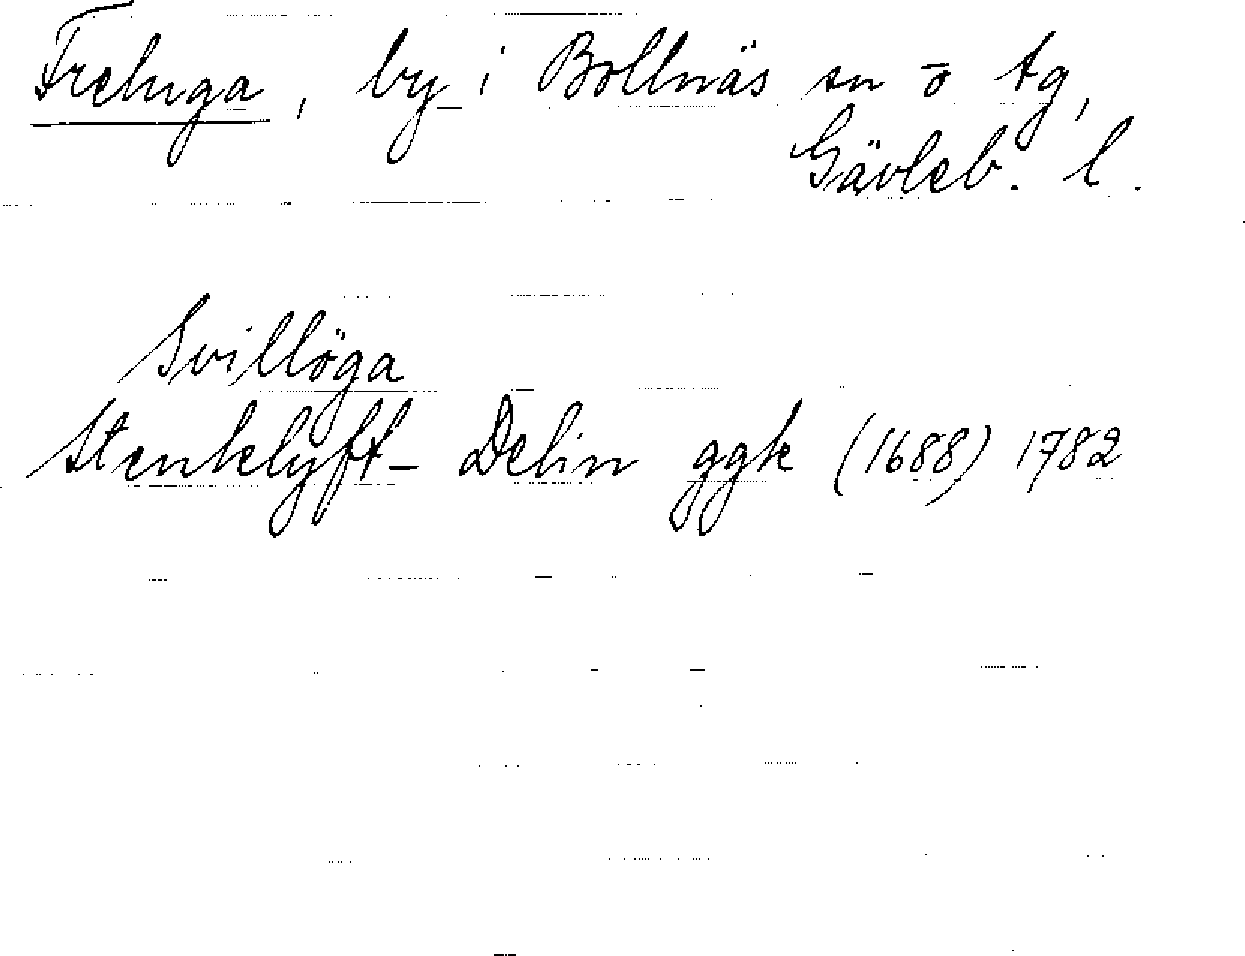 Freluga, by i Bollnäs sn o tg,
Gävleb. l.
Svillöga
Stenklyft- Delin ggk (1688) 1782